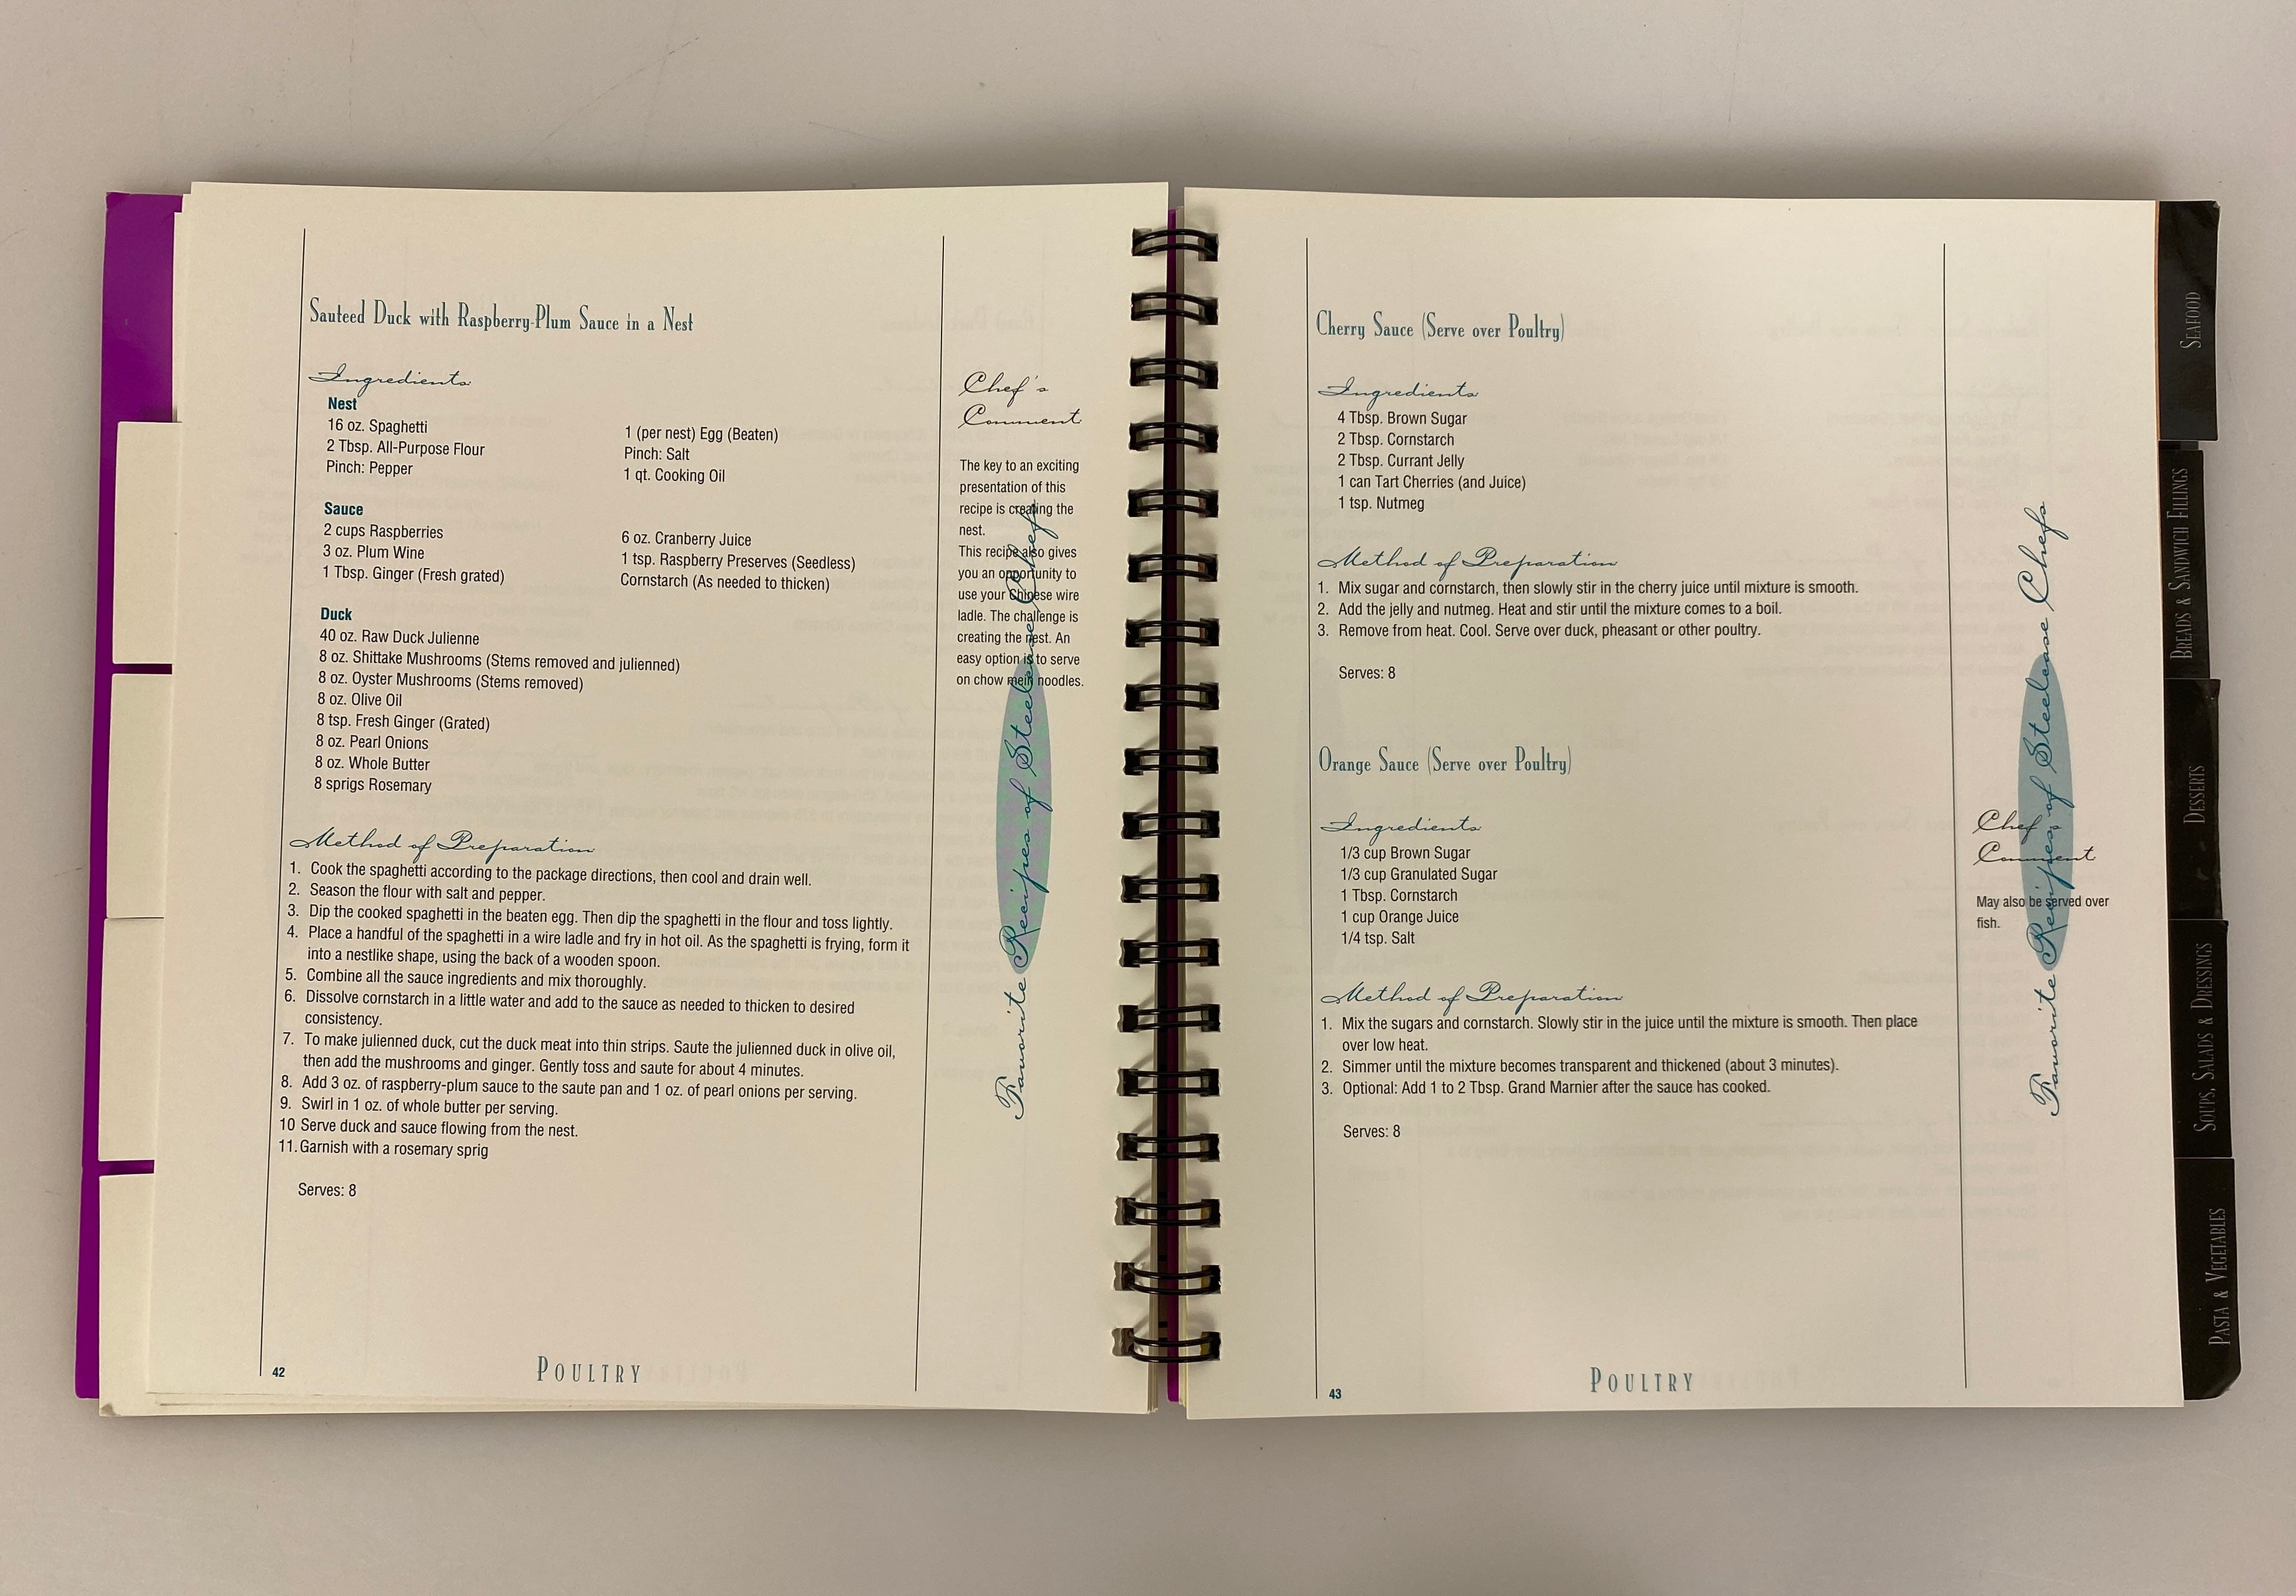 Sauteed Duck with Raspberry-Plum Sauce in a Nest
Ingredients
Nest
16 oz. Spaghetti
2 Tbsp. All-Purpose Flour
Pinch: Pepper
1 (per nest) Egg (Beaten)
Pinch: Salt
1 qt. Cooking Oil
Sauce
2 cups Raspberries
3 oz. Plum Wine
1 Tbsp. Ginger (Fresh grated)
6 oz. Cranberry Juice
1 tsp. Raspberry Preserves (Seedless)
Cornstarch (As needed to thicken)
Duck
40 oz. Raw Duck Julienne
8 oz. Shittake Mushrooms (Stems removed and julienned)
8 oz. Oyster Mushrooms (Stems removed)
8 oz. Olive Oil
8 tsp. Fresh Ginger (Grated)
8 oz. Pearl Onions
8 oz. Whole Butter
8 sprigs Rosemary
Method of Preparation
1. Cook the spaghetti according to the package directions, then cool and drain well.
2. Season the flour with salt and pepper.
3. Dip the cooked spaghetti in the beaten egg. Then dip the spaghetti in the flour and toss lightly.
4. Place a handful of the spaghetti in a wire ladle and fry in hot oil. As the spaghetti is frying, form it
into a nestlike shape, using the back of a wooden spoon.
5. Combine all the sauce ingredients and mix thoroughly.
6. Dissolve cornstarch in a little water and add to the sauce as needed to thicken to desired
consistency.
7. To make julienned duck, cut the duck meat into thin strips. Saute the julienned duck in olive oil,
then add the mushrooms and ginger. Gently toss and saute for about 4 minutes.
8. Add 3 oz. of raspberry-plum sauce to the saute pan and 1 oz. of pearl onions per serving.
9. Swirl in 1 oz. of whole butter per serving.
10 Serve duck and sauce flowing from the nest.
11. Garnish with a rosemary sprig
Serves: 8
Chef's
Comment
The key to an exciting
presentation of this
recipe is creating the
nest.
This recipe also gives
you an opportunity to
use your Chinese wire
ladle. The challenge is
creating the nest. An
easy option is to serve
on chow mein noodles.
Favorite Recipes of Steelcase Chefs
42
POULTRY
Cherry Sauce (Serve over Poultry)
Ingredients
4 Tbsp. Brown Sugar
2 Tbsp. Cornstarch
2 Tbsp. Currant Jelly
1 can Tart Cherries (and Juice)
1 tsp. Nutmeg
Method of Preparation
1. Mix sugar and cornstarch, then slowly stir in the cherry juice until mixture is smooth.
2. Add the jelly and nutmeg. Heat and stir until the mixture comes to a boil.
3. Remove from heat. Cool. Serve over duck, pheasant or other poultry.
Serves: 8
Orange Sauce (Serve over Poultry)
Ingredients
1/3 cup Brown Sugar
1/3 cup Granulated Sugar
1 Tbsp. Cornstarch
1 cup Orange Juice
1/4 tsp. Salt
Method of Preparation
1. Mix the sugars and cornstarch. Slowly stir in the juice until the mixture is smooth. Then place
over low heat.
2. Simmer until the mixture becomes transparent and thickened (about 3 minutes).
3. Optional: Add 1 to 2 Tbsp. Grand Marnier after the sauce has cooked.
Serves: 8
Chef's
Comment
May also be served over
fish.
Favorite Recipes of Steelcase Chefs
43
POULTRY
SEAFOOD
BREADS & SANDWICH FILLINGS
DESSERTS
SOUPS, SALADS & DRESSINGS
PASTA & VEGETABLES